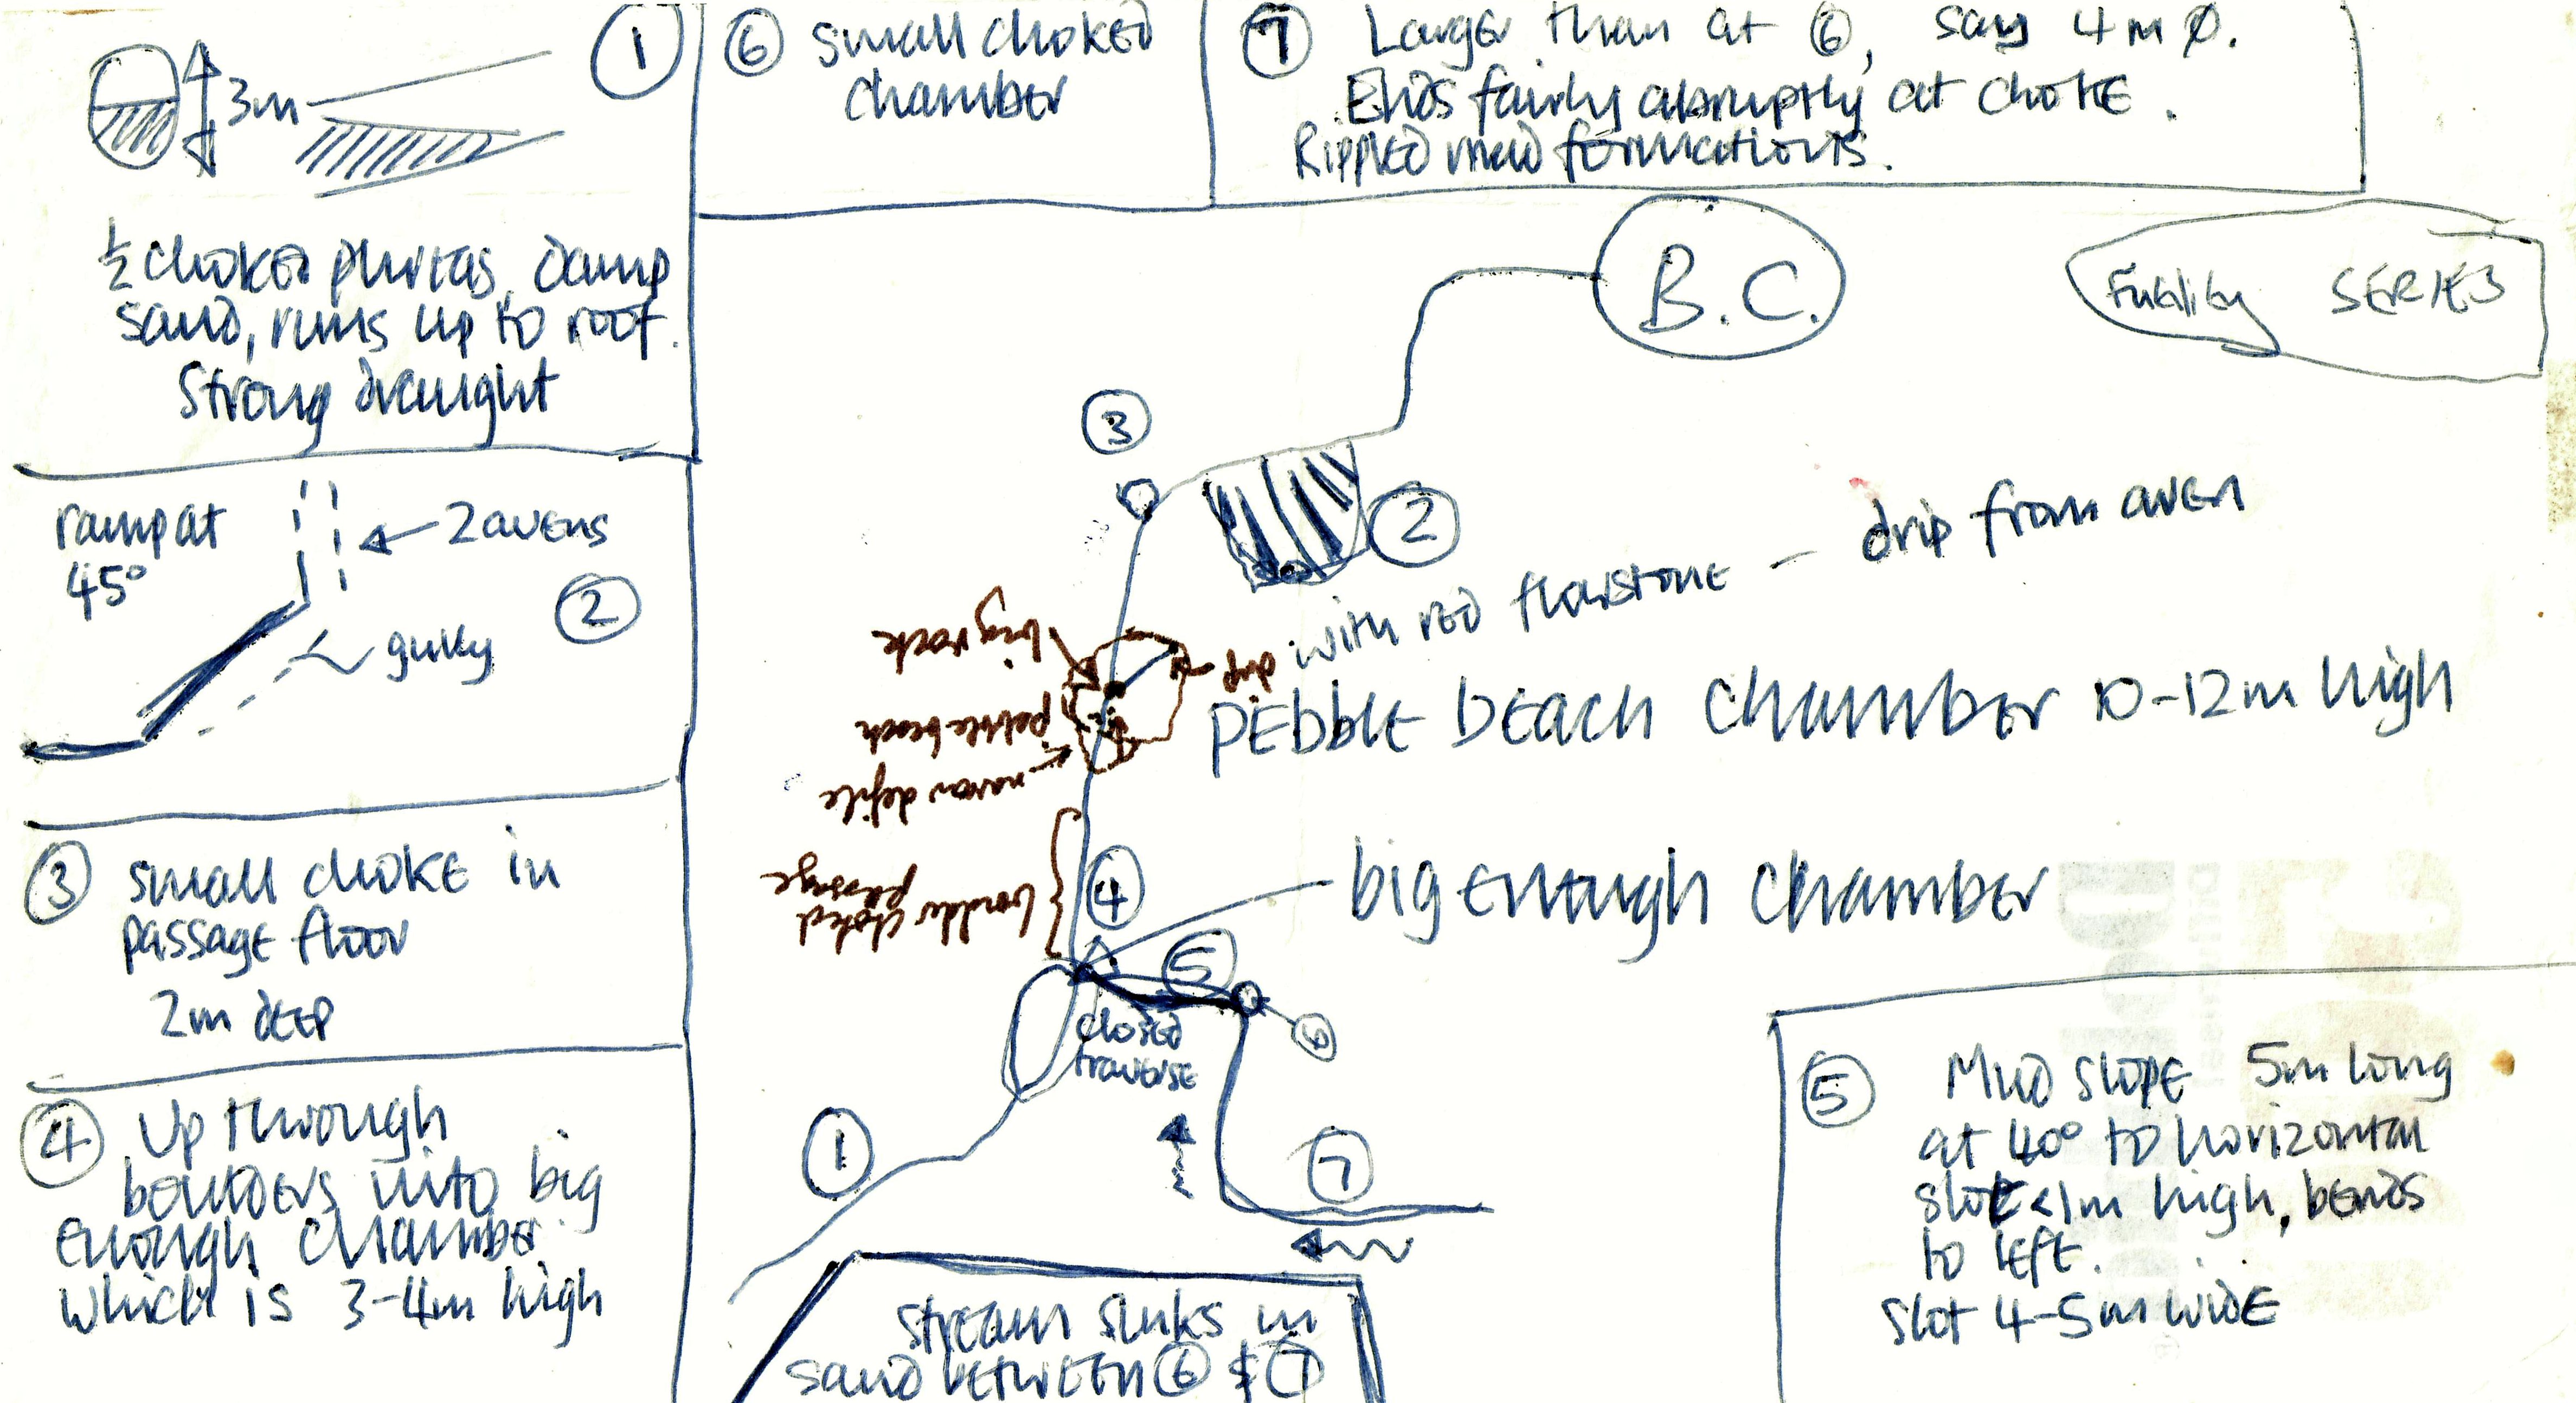 1
3m
½ choked phreas, damp
sand, runs up to roof.
Strong draught
6 small choked
chamber
7 Larger than at 6, say 4m Ø.
Ends fairly abruptly at choke.
Rippled mud formations.
B.C.
Futility SERIES
ramp at
45°
2 avens
2
gully
3 small choke in
passage floor
2m deep
4 Up through
boulders into big
enough chamber
which is 3-4m high
3
2
with red flowstone - drip from aven
big rock
drip
pebble beach
narrow defile
Pebble Beach Chamber 10-12m high
boulder choked
passage
4
big enough chamber
5
closed
traverse
6
1
7
stream sinks in
sand between 6 & 7
5 Mud slope 5m long
at 40° to horizontal
slot <1m high, bends
to left.
slot 4-5m wide